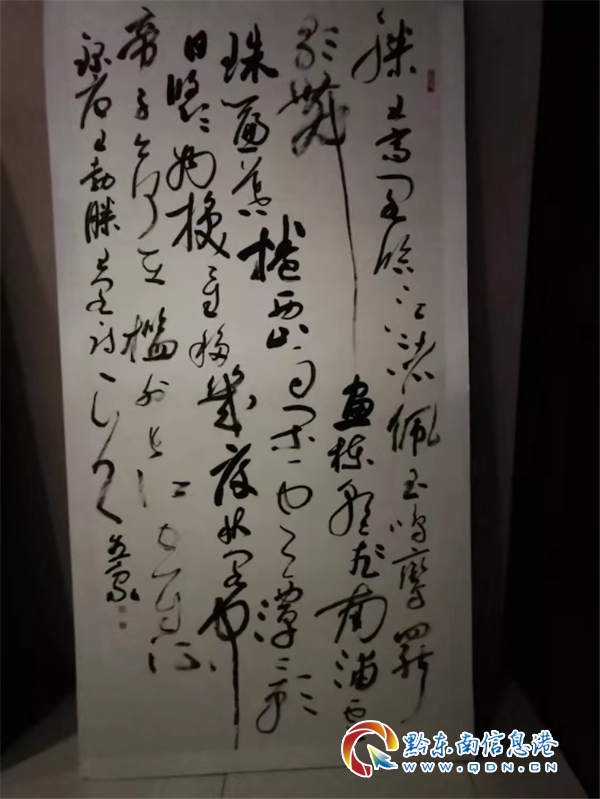 滕王高阁临江渚佩玉鸣鸾罢
歌舞画栋朝飞南浦云
珠帘暮捲西山雨闲云潭影
日悠悠物换星移几度秋阁中
帝子今何在槛外长江空自流
王勃滕王阁诗
黔东南信息港
www.QDN.cn